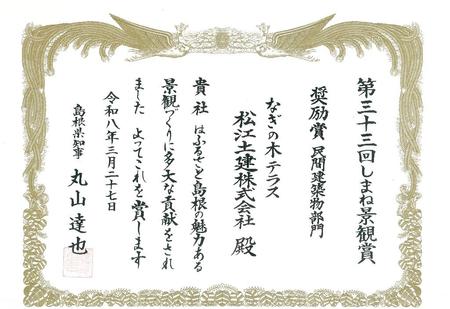 第三十三回しまね景観賞
奨励賞 民間建築物部門
なぎの木テラス
松江土建株式会社 殿
貴社 はふるさと島根の魅力ある
景観づくりに多大な貢献をされ
ました よってこれを賞します
令和八年三月二十七日
島根県知事 丸山達也